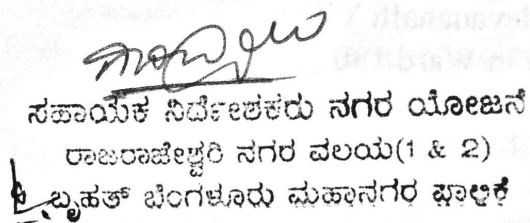 ಸಹಾಯಕ ನಿರ್ದೇಶಕರು ನಗರ ಯೋಜನೆ
ರಾಜರಾಜೇಶ್ವರಿ ನಗರ ವಲಯ(1 & 2)
ಬೃಹತ್ ಬೆಂಗಳೂರು ಮಹಾನಗರ ಪಾಲಿಕೆ